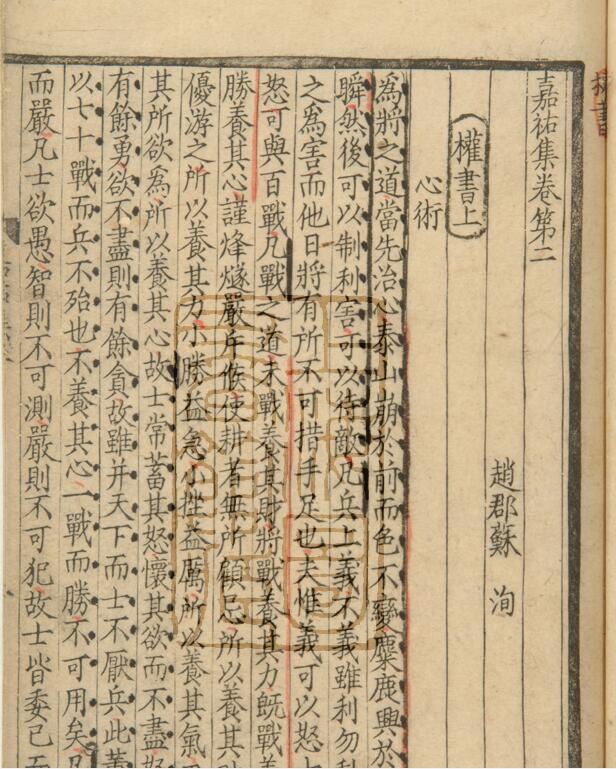 嘉祐集卷第二
趙郡蘇　洵
權書上
心術
爲將之道當先治心泰山崩於前而色不變麋鹿興於
瞬然後可以制利害可以待敵凡兵上義不義雖利勿
之爲害而他日將有所不可措手足也夫惟義可以怒
怒可與百戰凡戰之道未戰養其財將戰養其力旣戰養
勝養其心謹烽燧嚴斥候使耕者無所顧忌所以養其
優游之所以養其力小勝益急小挫益厲所以養其氣
其所欲爲所以養其心故士常蓄其怒懷其欲而不盡
有餘勇欲不盡則有餘貪故雖并天下而士不厭兵此
以七十戰而兵不殆也不養其心一戰而勝不可用矣
而嚴凡士欲愚智則不可測嚴則不可犯故士皆委己而